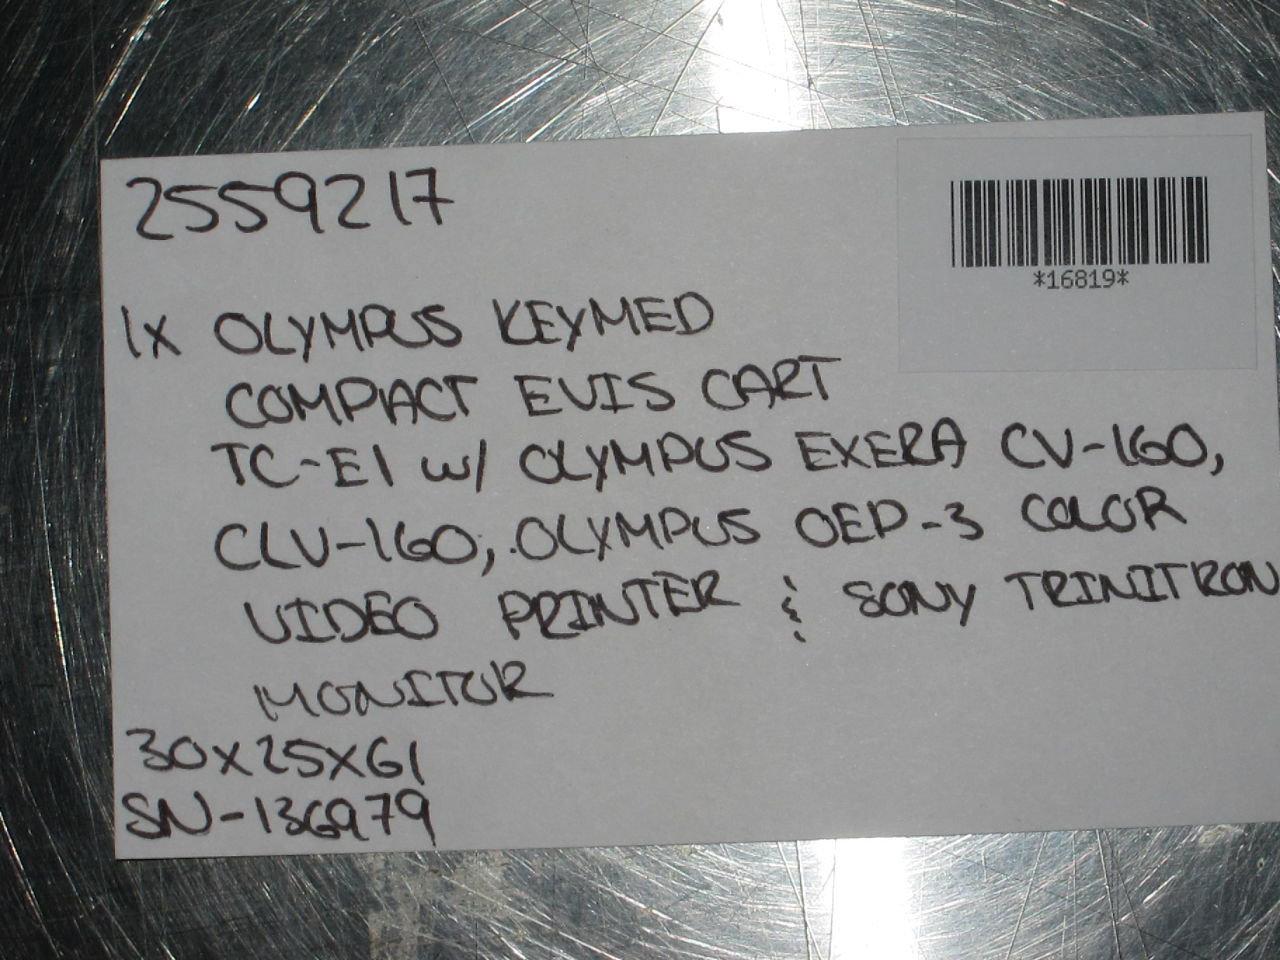 2559217
*16819*
1X OLYMPUS KEYMED
COMPACT EVIS CART
TC-E1 w/ OLYMPUS EXERA CV-160,
CLV-160, OLYMPUS OEP-3 COLOR
VIDEO PRINTER & SONY TRINITRON
MONITOR
30x25x61
SN-136979